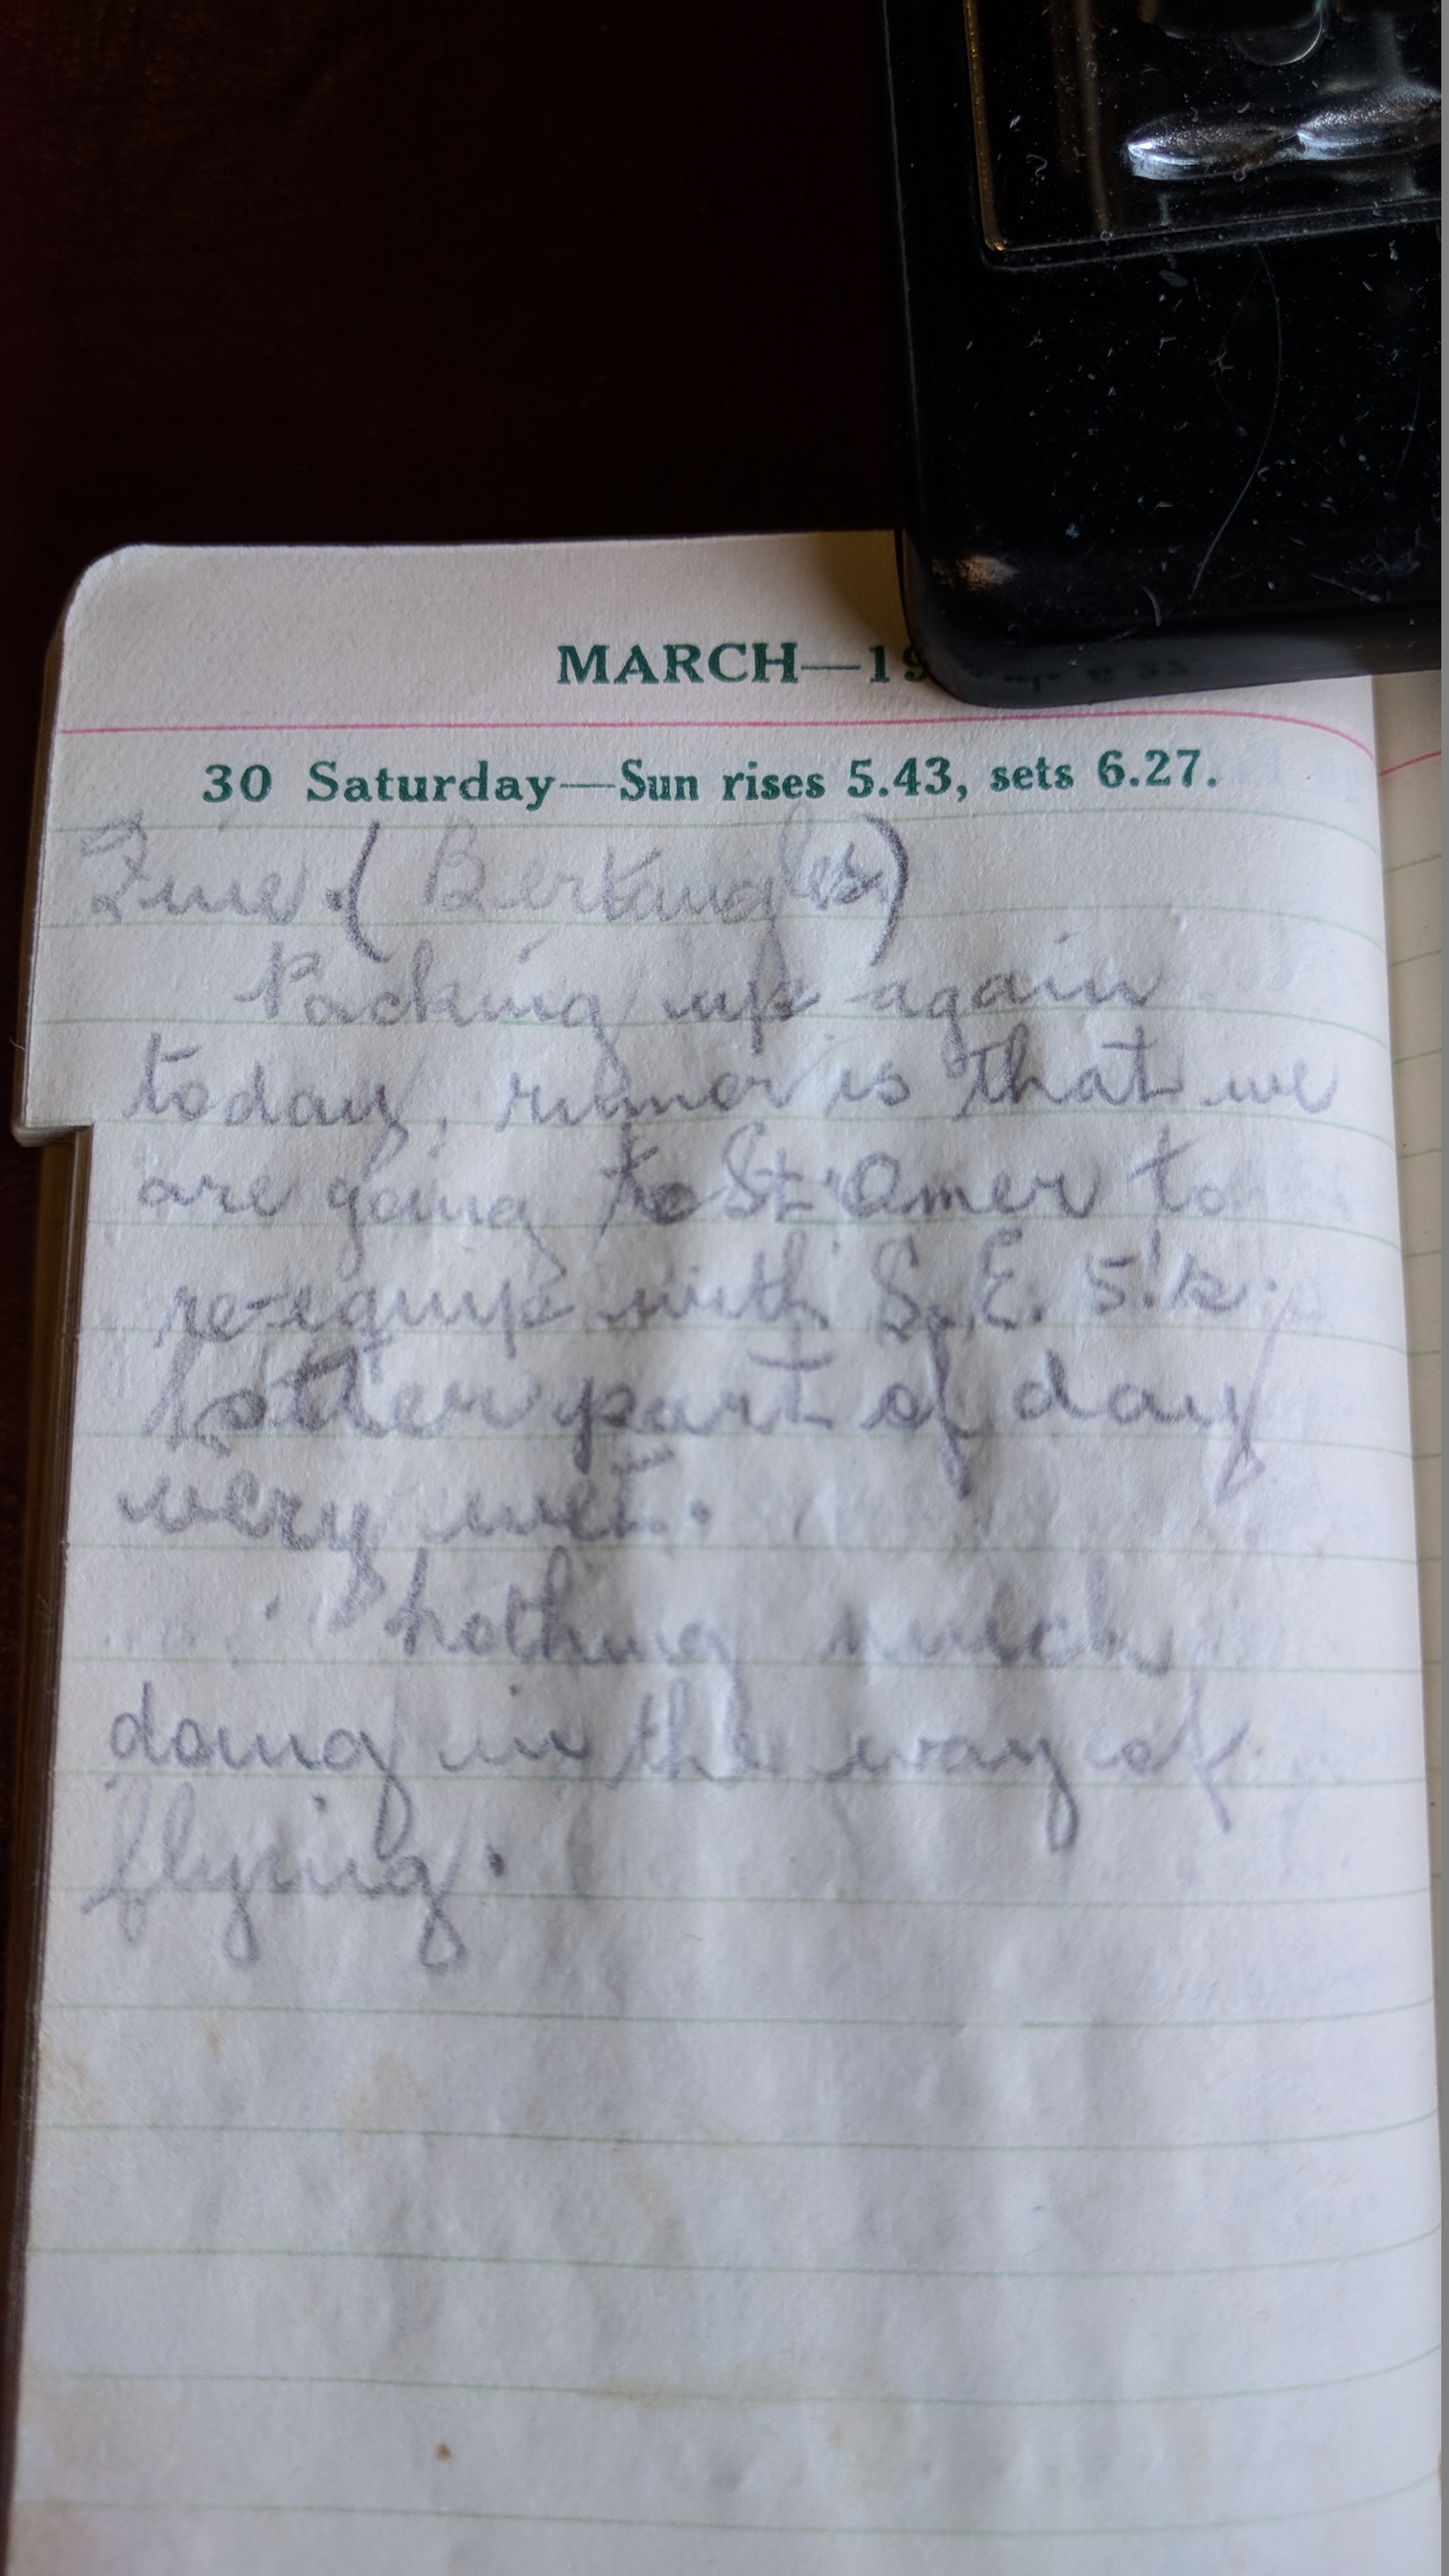 MARCH—19
30 Saturday—Sun rises 5.43, sets 6.27.
Fine. (Bertangles)
Packing up again
today, rumor is that we
are going to St Omer to
re-equip with S.E. 5!s.
Latter part of day
very wet.
Nothing much
doing in the way of
flying.